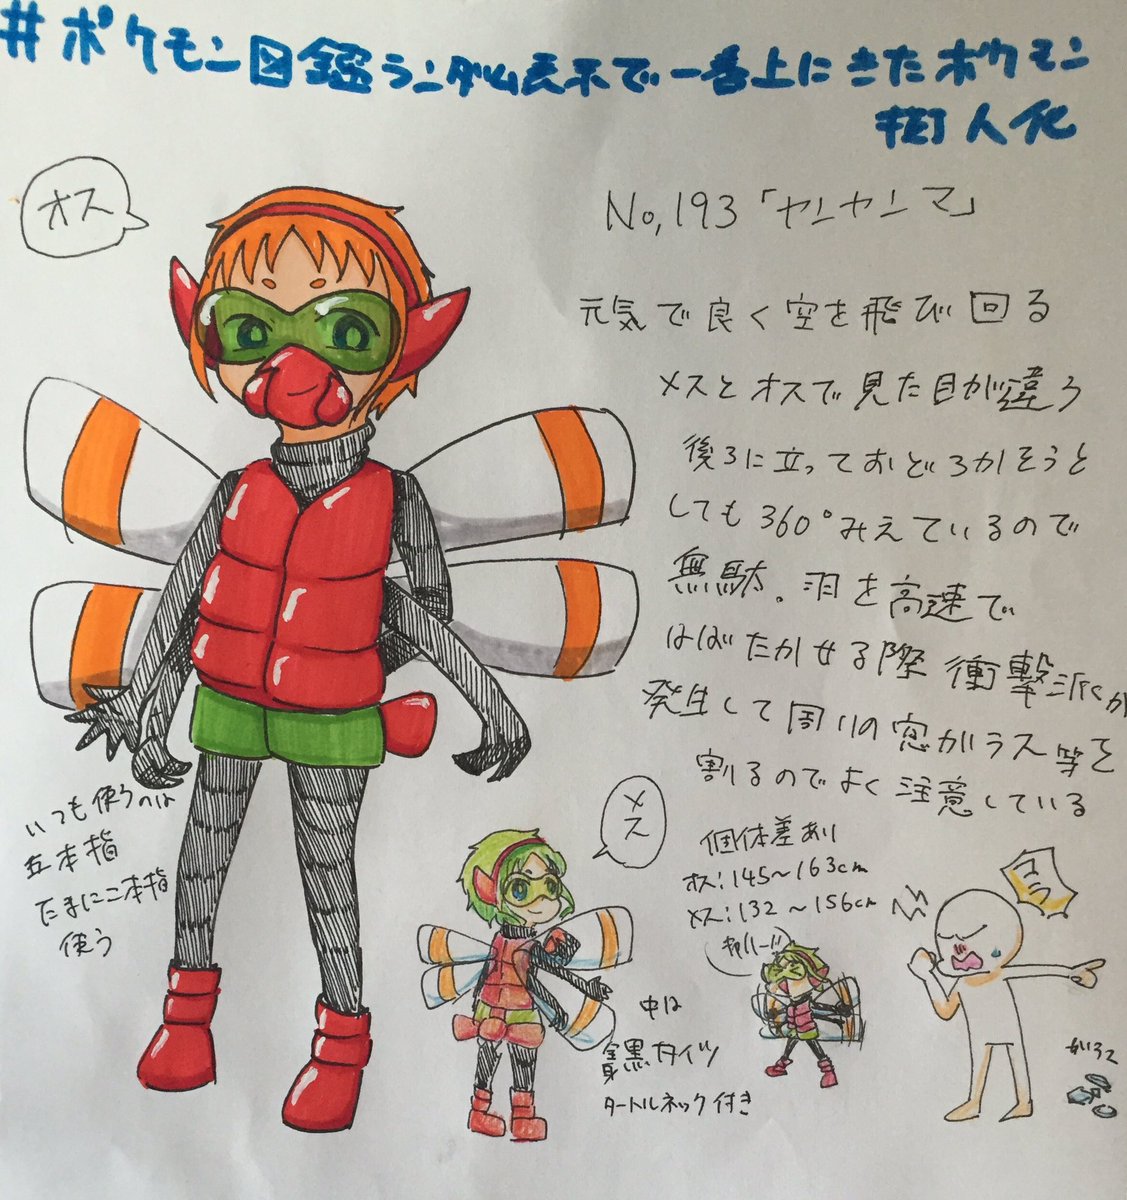 #ポケモン図鑑ランダム表示で一番上にきたポケモン
擬人化
オス
No,193「ヤンヤンマ」
元気で良く空を飛び回る
メスとオスで見た目が違う
後ろに立っておどろかそうと
しても360°みえているので
無駄。羽を高速で
はばたかせる際衝撃派が
発生して周りの窓ガラス等を
割るのでよく注意している
いつも使うのは
五本指
たまに二本指
使う
メス
個体差あり
オス:145〜163cm
メス:132〜156cm
中は
黒タイツ
タートルネック付き